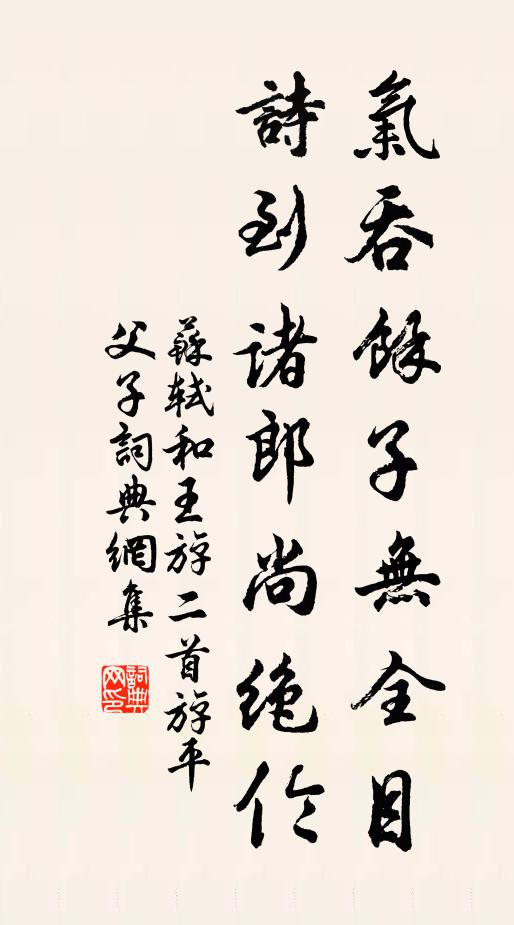 氣吞餘子無全目
詩到諸郎尚絶伦
蘇軾和王斿二首斿平
父子詞典網集
詞典网印